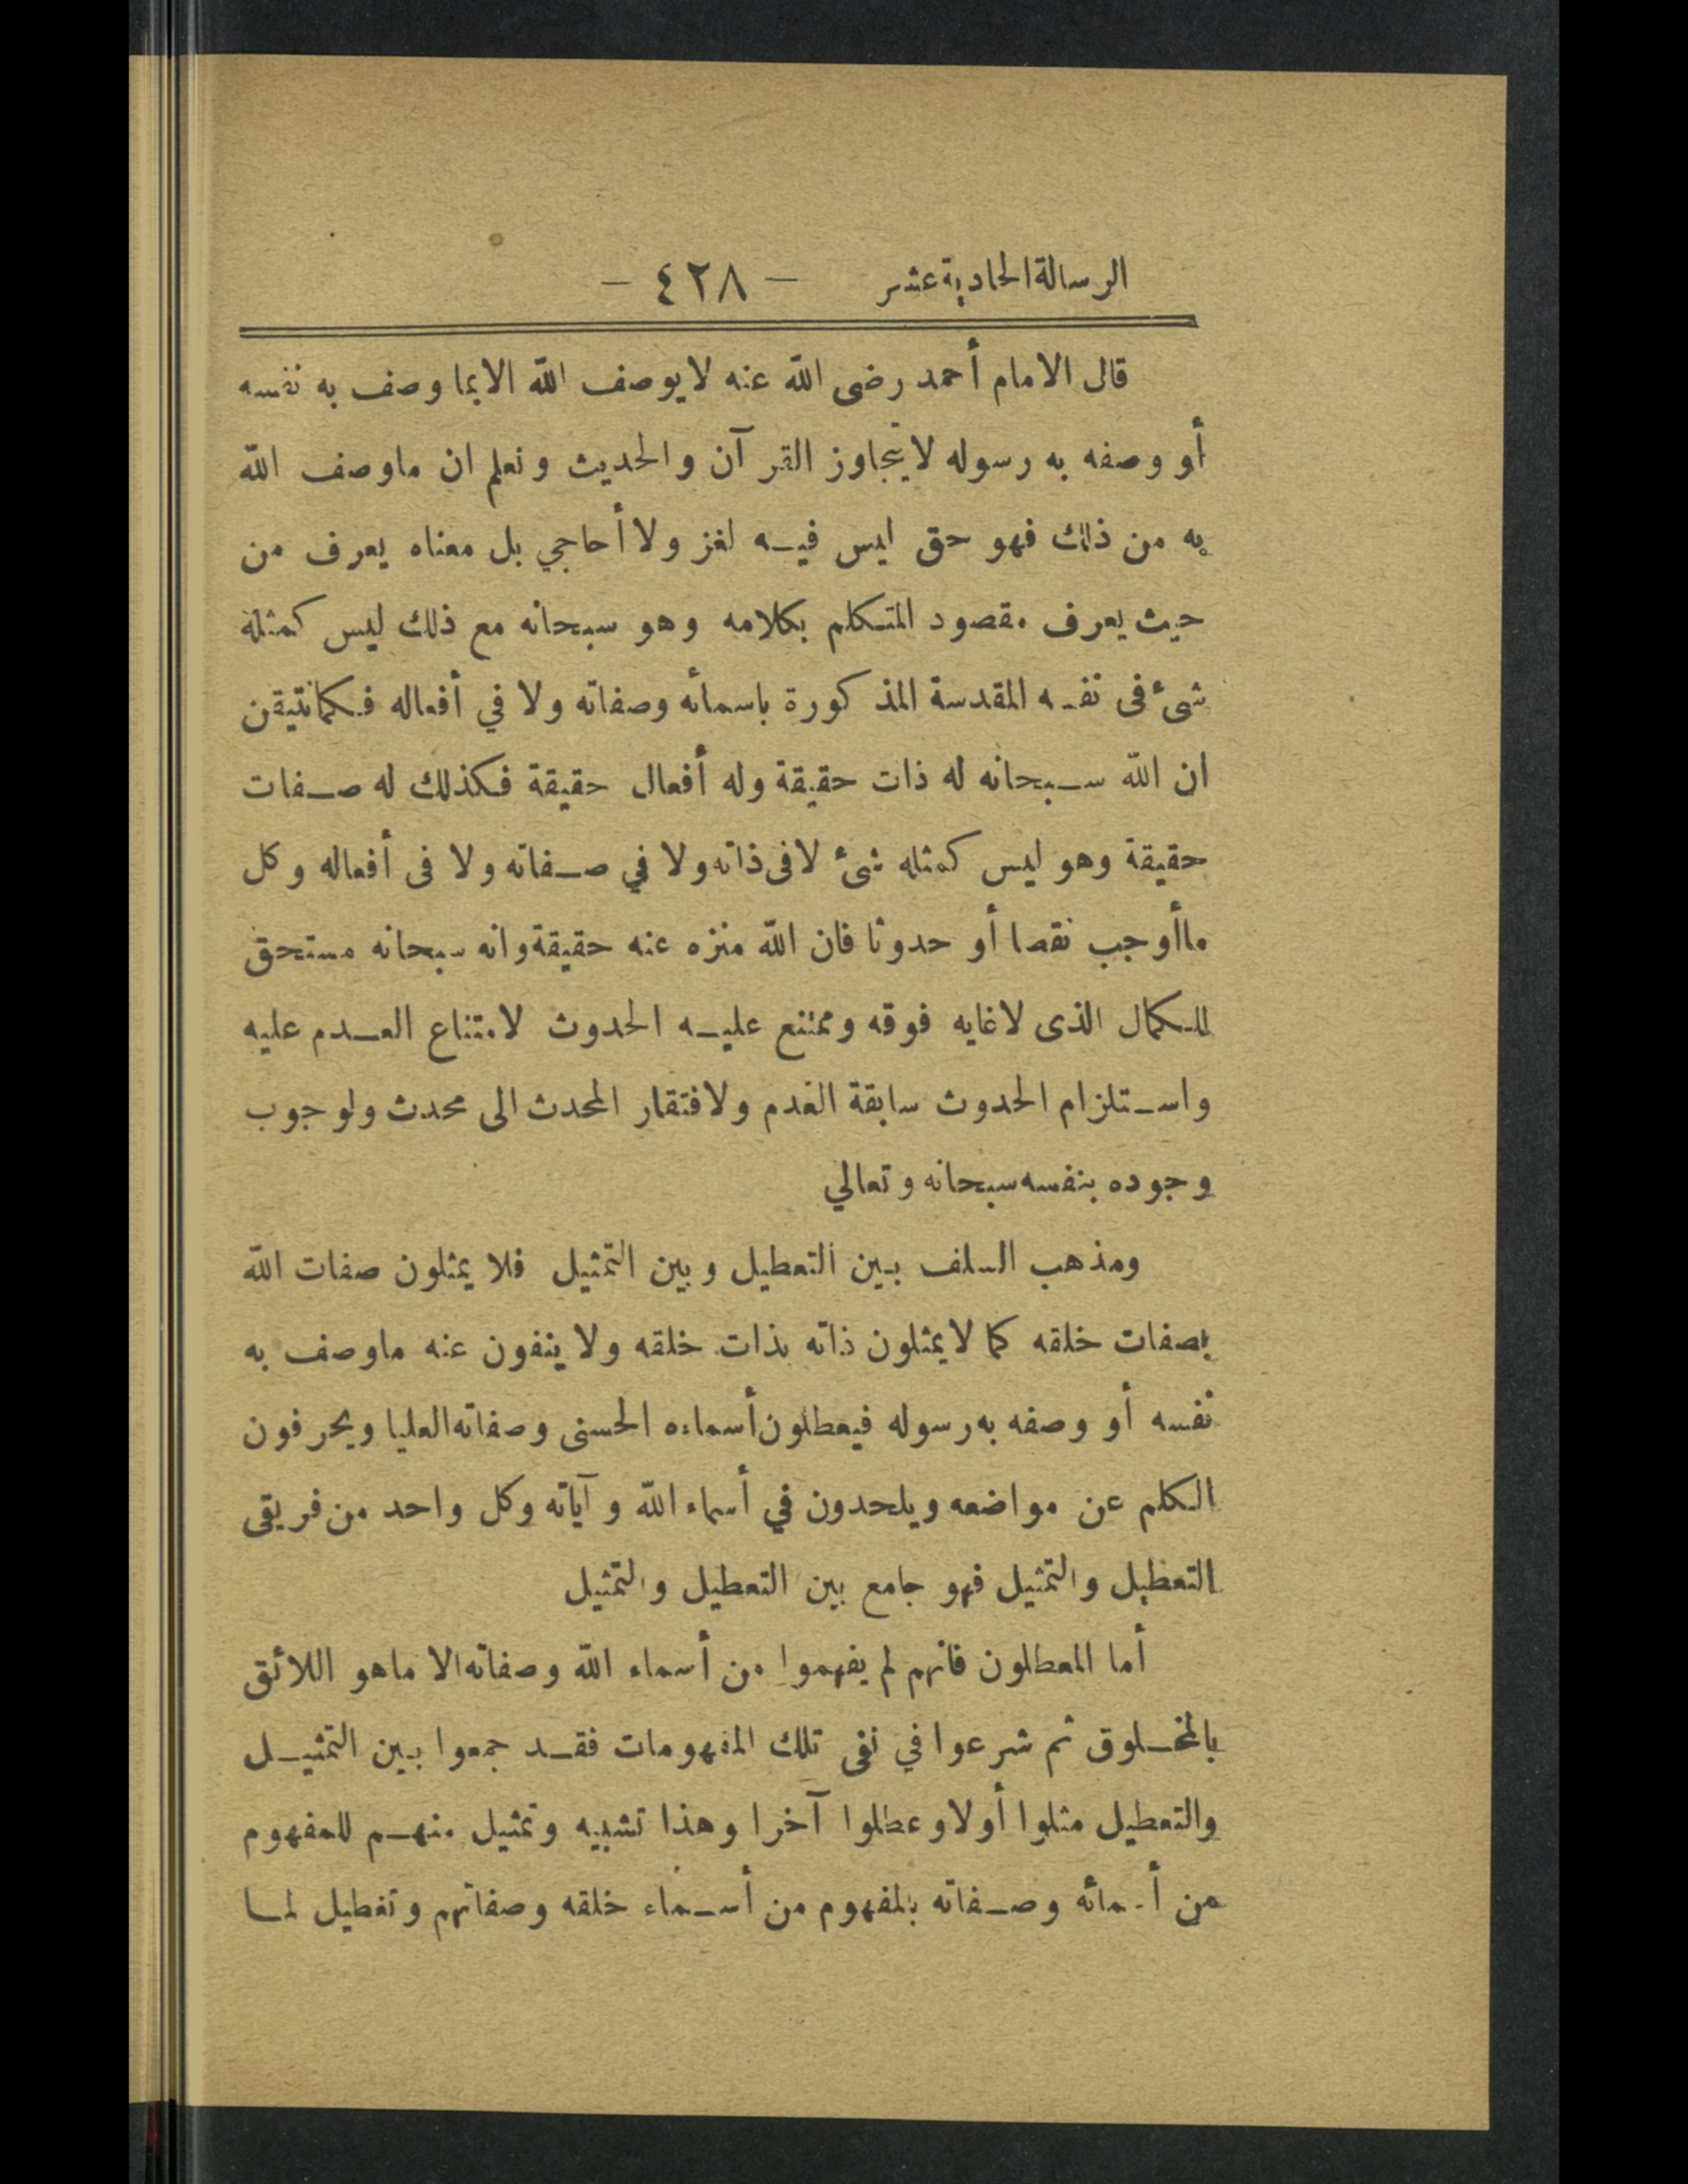 الرسالة الحادية عشر — ٤٢٨ —
قال الامام أحمد رضى الله عنه لا يوصف الله الا بما وصف به نفسه
أو وصفه به رسوله لا يتجاوز القرآن والحديث ونعلم ان ما وصف الله
به من ذلك فهو حق ليس فيه لغز ولا أحاجي بل معناه يعرف من
حيث يعرف مقصود المتكلم بكلامه وهو سبحانه مع ذلك ليس كمثله
شئ فى نفسه المقدسة المذكورة باسمائه وصفاته ولا في أفعاله فكما نتيقن
ان الله سبحانه له ذات حقيقة وله أفعال حقيقة فكذلك له صفات
حقيقة وهو ليس كمثله شئ لا فى ذاته ولا في صفاته ولا فى أفعاله وكل
ما أوجب نقصا أو حدوثا فان الله منزه عنه حقيقة وانه سبحانه مستحق
للكمال الذى لا غايه فوقه وممتنع عليه الحدوث لامتناع العدم عليه
واستلزام الحدوث سابقة العدم ولافتقار المحدث الى محدث ولوجوب
وجوده بنفسه سبحانه وتعالي
ومذهب السلف بين التعطيل وبين التمثيل فلا يمثلون صفات الله
بصفات خلقه كما لا يمثلون ذاته بذات خلقه ولا ينفون عنه ما وصف به
نفسه أو وصفه به رسوله فيعطلون أسماءه الحسنى وصفاته العليا ويحرفون
الكلم عن مواضعه ويلحدون في أسماء الله وآياته وكل واحد من فريقى
التعطيل والتمثيل فهو جامع بين التعطيل والتمثيل
أما المعطلون فانهم لم يفهموا من أسماء الله وصفاته الا ما هو اللائق
بالمخلوق ثم شرعوا في نفى تلك المفهومات فقد جمعوا بين التمثيل
والتعطيل مثلوا أولا وعطلوا آخرا وهذا تشبيه وتمثيل منهم للمفهوم
من أسمائه وصفاته بالمفهوم من أسماء خلقه وصفاتهم وتعطيل لما